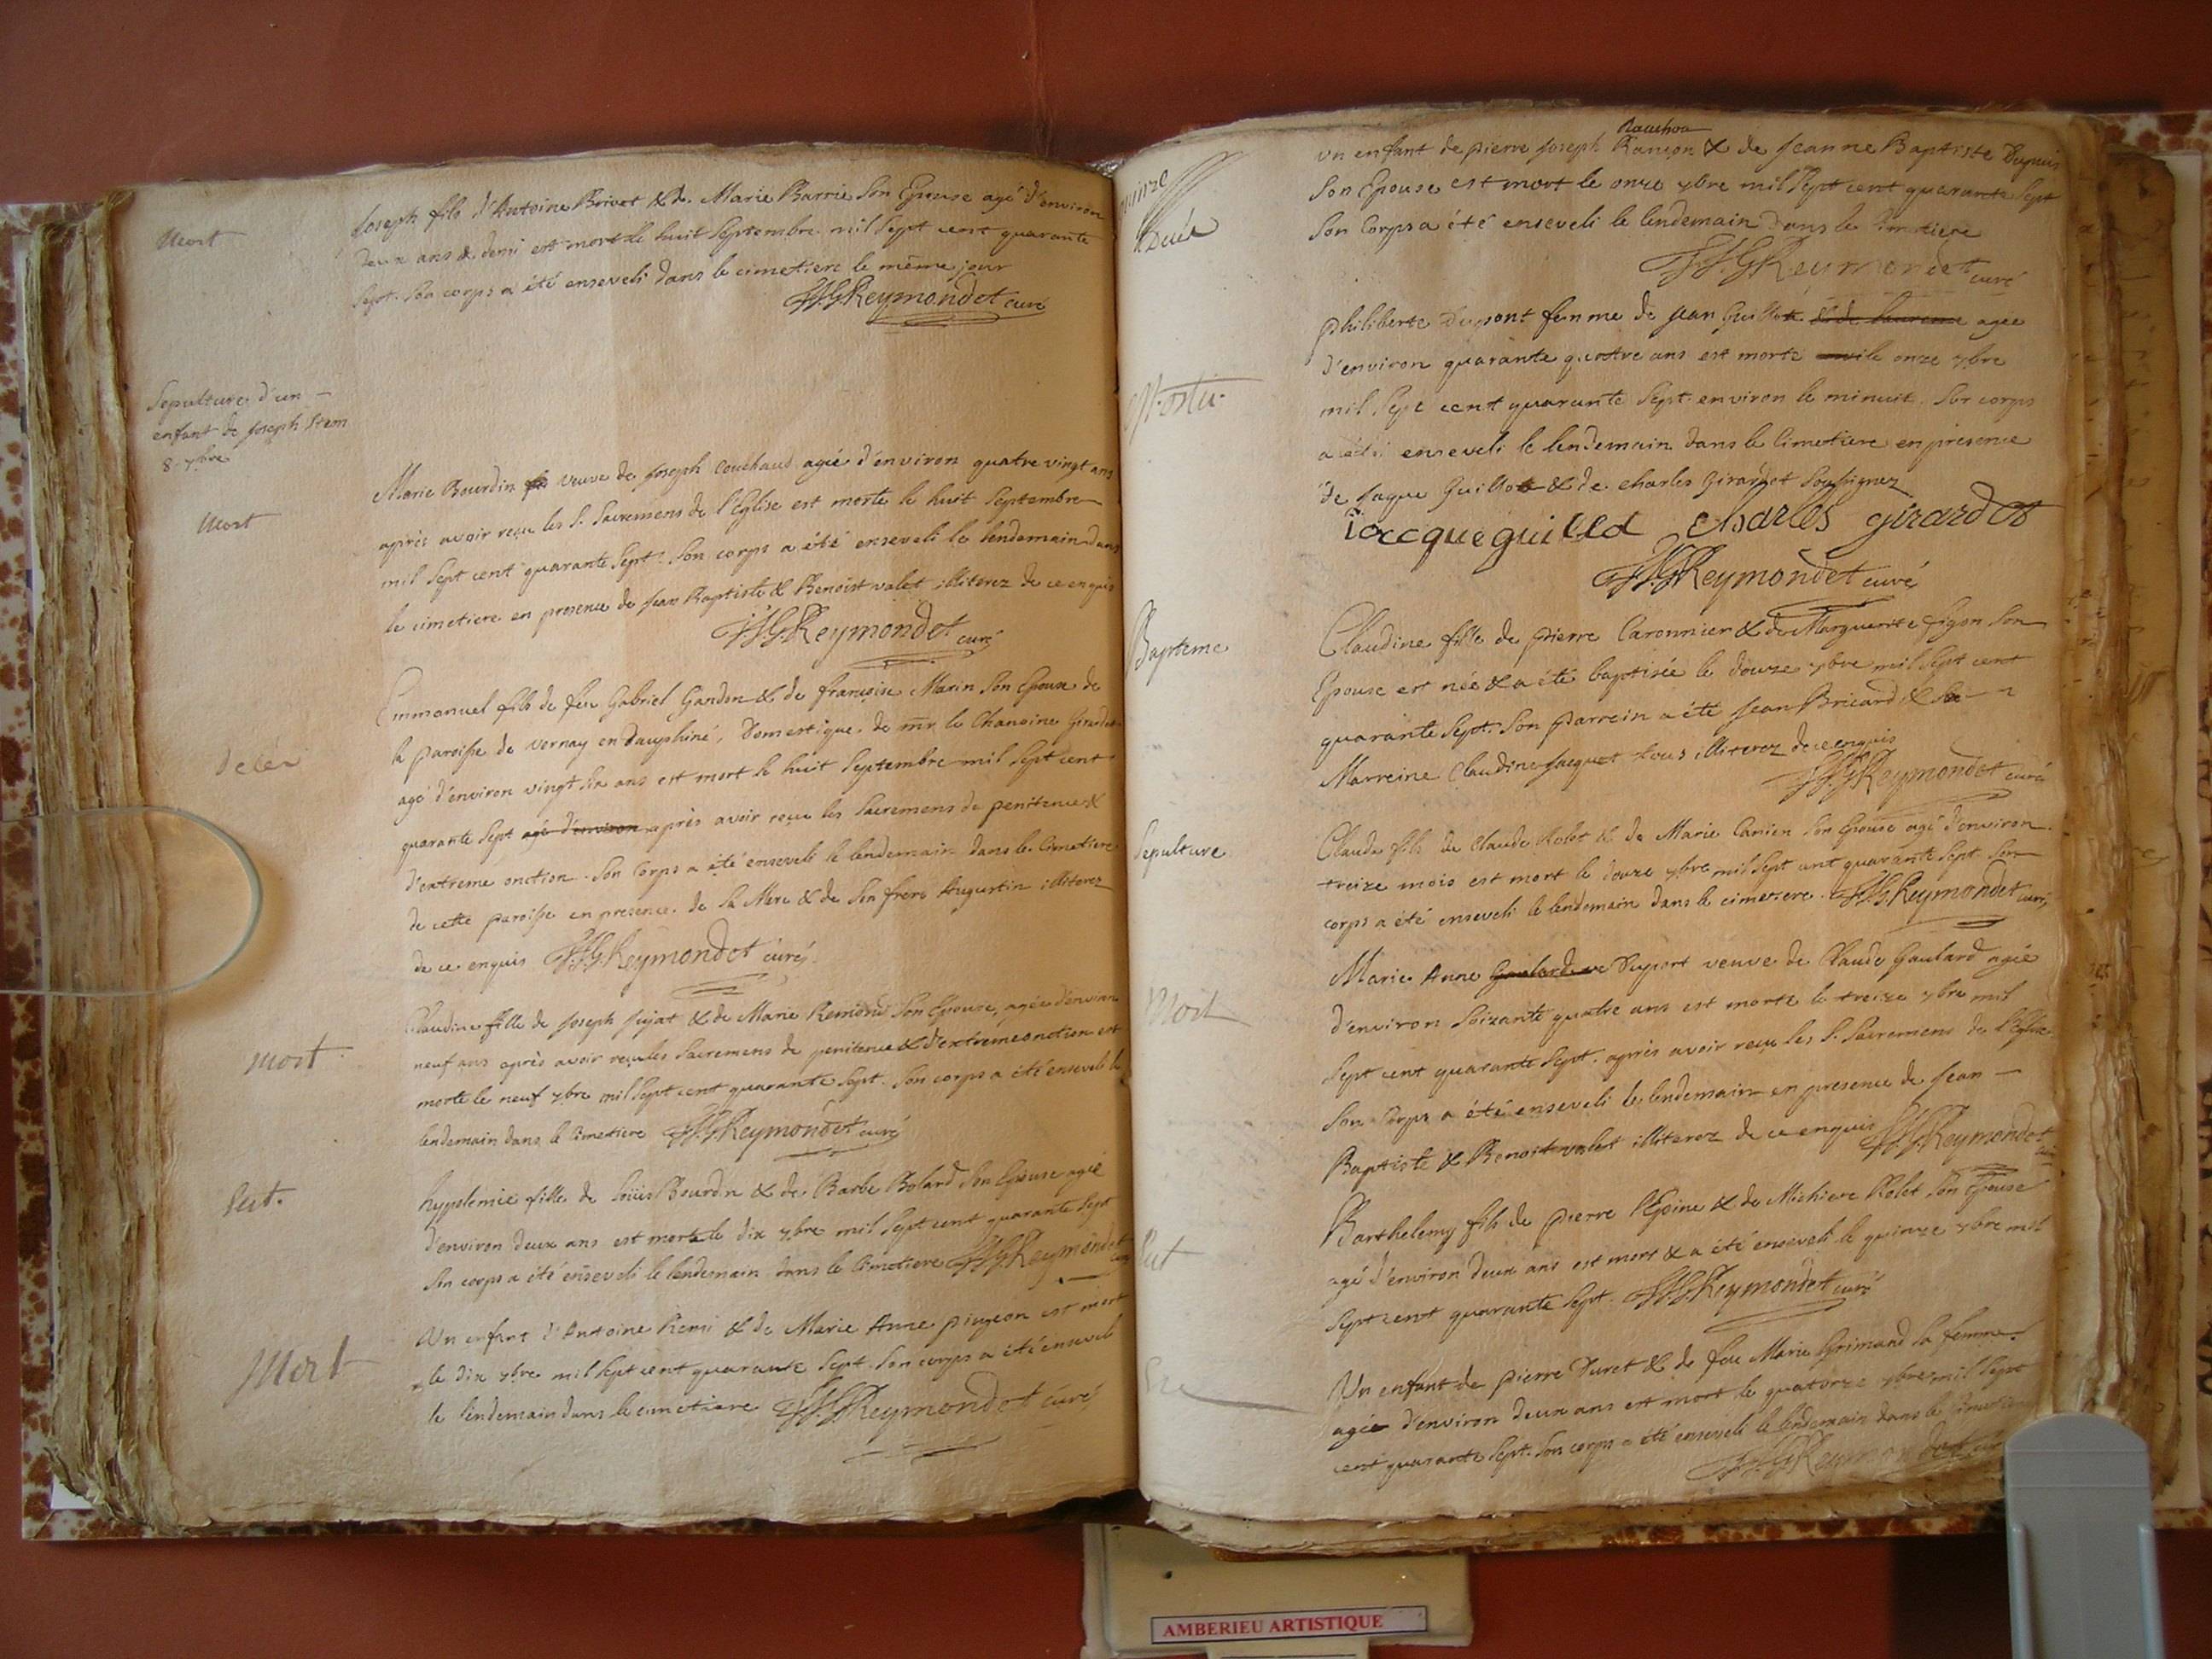 Mort
Joseph fils d'Antoine Brivet & de Marie Barrie son Epouse agé d'environ
deux ans & demi est mort le huit Septembre mil Sept cent quarante
Sept. Son corps a été enseveli dans le cimetiere le même jour
Reymondet curé
Sepulture d'un
enfant de Joseph
8 7bre
Mort
Marie Bourdin veuve de Joseph Couchaud agée d'environ quatre vingt ans
après avoir reçu les S. Sacremens de l'Eglise est morte le huit Septembre
mil Sept cent quarante Sept. Son corps a été enseveli le lendemain dans
le cimetiere en presence de Jean Baptiste & Benoist valet illiterez de ce enquis
Reymondet curé
Emmanuel fils de feu Gabriel Gandon & de françoise Marin Son Epouse de
la paroisse de Vernay en Dauphiné, Domestique de mr le Chanoine
agé d'environ vingt six ans est mort le huit Septembre mil Sept cent
quarante Sept agé d'environ après avoir reçu les Sacremens de penitence &
d'extreme onction. Son Corps a été enseveli le lendemain dans le Cimetiere
de cette paroisse en presence de Sa Mere & de Son frere Augustin illiterez
de ce enquis Reymondet curé
mort
Claudine fille de Joseph Jujat & de Marie Remond Son Epouse, agée d'environ
neuf ans après avoir reçu les Sacremens de penitence & d'extreme onction est
morte le neuf 7bre mil Sept cent quarante Sept. Son corps a été enseveli le
lendemain dans le Cimetiere Reymondet curé
fille de Loüis Bourdin & de Barbe Bolard Son Epouse agée
d'environ deux ans est morte le dix 7bre mil Sept cent quarante Sept
Son corps a été enseveli le lendemain dans le Cimetiere Reymondet
Mort
Un enfant d'Antoine Remi & de Marie Anne pingeon est mort
le dix 7bre mil Sept cent quarante Sept. Son corps a été enseveli
le lendemain dans le cimetiere Reymondet curé
un enfant de pierre Joseph Rançon & de Jeanne Baptiste Dupuis
Son Epouse est mort le onze 7bre mil Sept cent quarante Sept
Son Corps a été enseveli le lendemain dans le Cimetiere
Reymondet curé
philiberte Dupont femme de Jean Guillot agée
d'environ quarante quatre ans est morte le onze 7bre
mil Sept cent quarante Sept environ le minuit. Son corps
a été enseveli le lendemain dans le Cimetiere en presence
de Jaque Guillot & de charles Girardot Soussignez
charles girardot
Reymondet curé
Bapteme
Claudine fille de pierre Caronnier & de Marguerite Son
Epouse est née & a été baptisée le douze 7bre mil Sept cent
quarante Sept. Son parrein a été Jean Bricard & Sa
Marreine Claudine Jacquet tous illiterez de ce enquis
Reymondet curé
Sepulture
Claude fils de Claude Rolet & de Marie Canier Son Epouse agé d'environ
treize mois est mort le douze 7bre mil Sept cent quarante Sept. Son
corps a été enseveli le lendemain dans le cimetiere. Reymondet curé
Mort
Marie Anne Duport veuve de Claude Gaulard agée
d'environ Soixante quatre ans est morte le treize 7bre mil
Sept cent quarante Sept. après avoir reçu les S. Sacremens de l'Eglise
Son Corps a été enseveli le lendemain en presence de Jean
Baptiste & Benoist valet illiterez de ce enquis Reymondet
Barthelemy fils de pierre l'Epine & de Rolet Son Epouse
agé d'environ deux ans est mort & a été enseveli le quinze 7bre mil
Sept cent quarante Sept. Reymondet curé
Un enfant de pierre Duret & de feu Marie Grimand Sa femme
agé d'environ deux ans est mort le quatorze 7bre mil Sept
cent quarante Sept. Son corps a été enseveli le lendemain dans le
Reymondet
AMBERIEU ARTISTIQUE